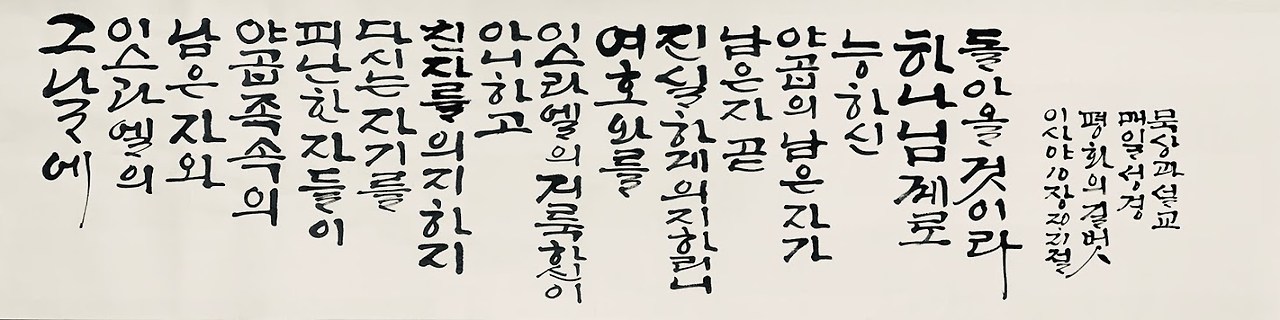 그날에
이스라엘의
남은 자와
야곱 족속의
피난한 자들이
다시는 자기를
친 자를 의지하지
아니하고
이스라엘의 거룩하신 이
여호와를
진실하게 의지하리니
남은 자 곧
야곱의 남은 자가
능하신
하나님께로
돌아올 것이라
이사야 10장 20, 21절
평화의 길벗
매일성경
묵상과 설교